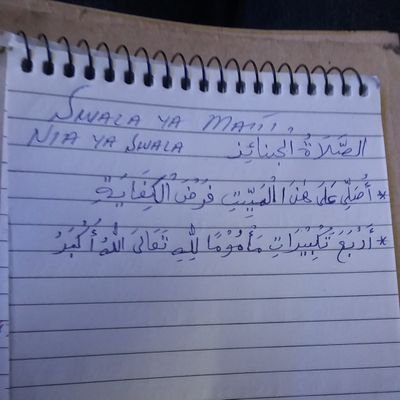 SWALA YA MAITI
NIA YA SWALA الصَّلَاةُ الجَنَائِزِ
* أُصَلِّى عَلَى هٰذَا الْمَيِّتِ فَرْضَ الْكِفَايَةِ
* أَرْبَعَ تَكْبِيْرَاتٍ مَأْمُوْمًا لِلّٰهِ تَعَالَى اللّٰهُ أَكْبَرُ